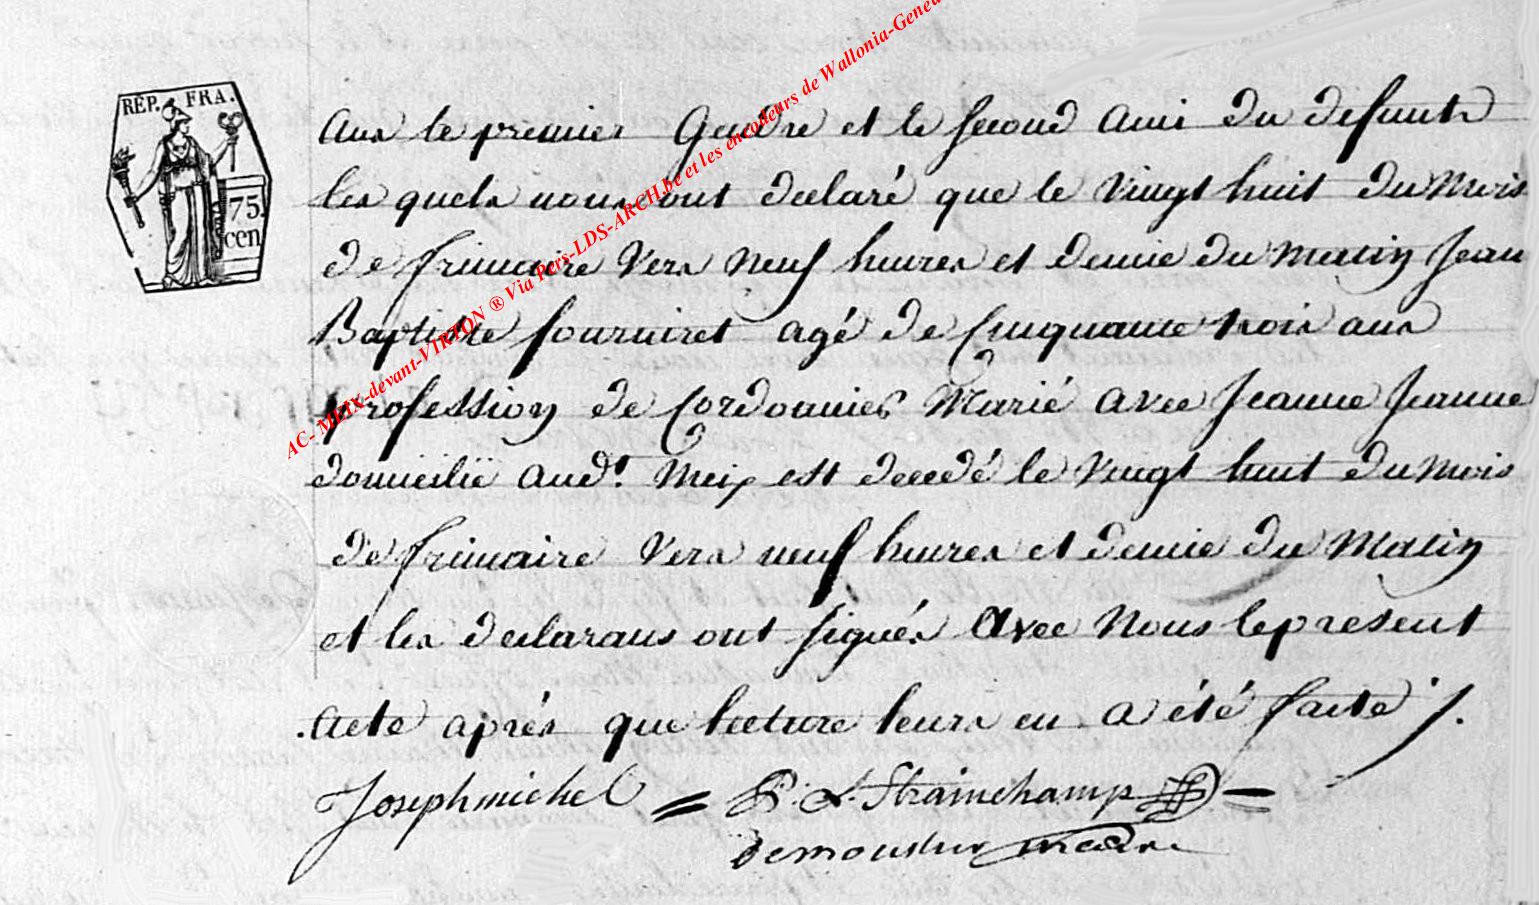 RÉP. FRA.
75
cen
AC- MEIX-devant-VIRTON ® Via Pers-LDS-ARCH.be et les encodeurs de Wallonia-Genea
ans le premier Gendre et le second ami du defunts
les quels nous ont declaré que le vingt huit du Mois
de frimaire vers neuf heures et demie du Matin Jean
Baptiste fourniret agé de Cinquante trois ans
profession de Cordonnier Marié avec Jeanne Jeanne
domicilié aud.t Meix est decedé le vingt huit du Mois
de frimaire vers neuf heures et demie du Matin
et les declarans ont signés Avec Nous le present
acte aprés que lecture leurs en a été faite ./.
Joseph michel = Strainchamp =